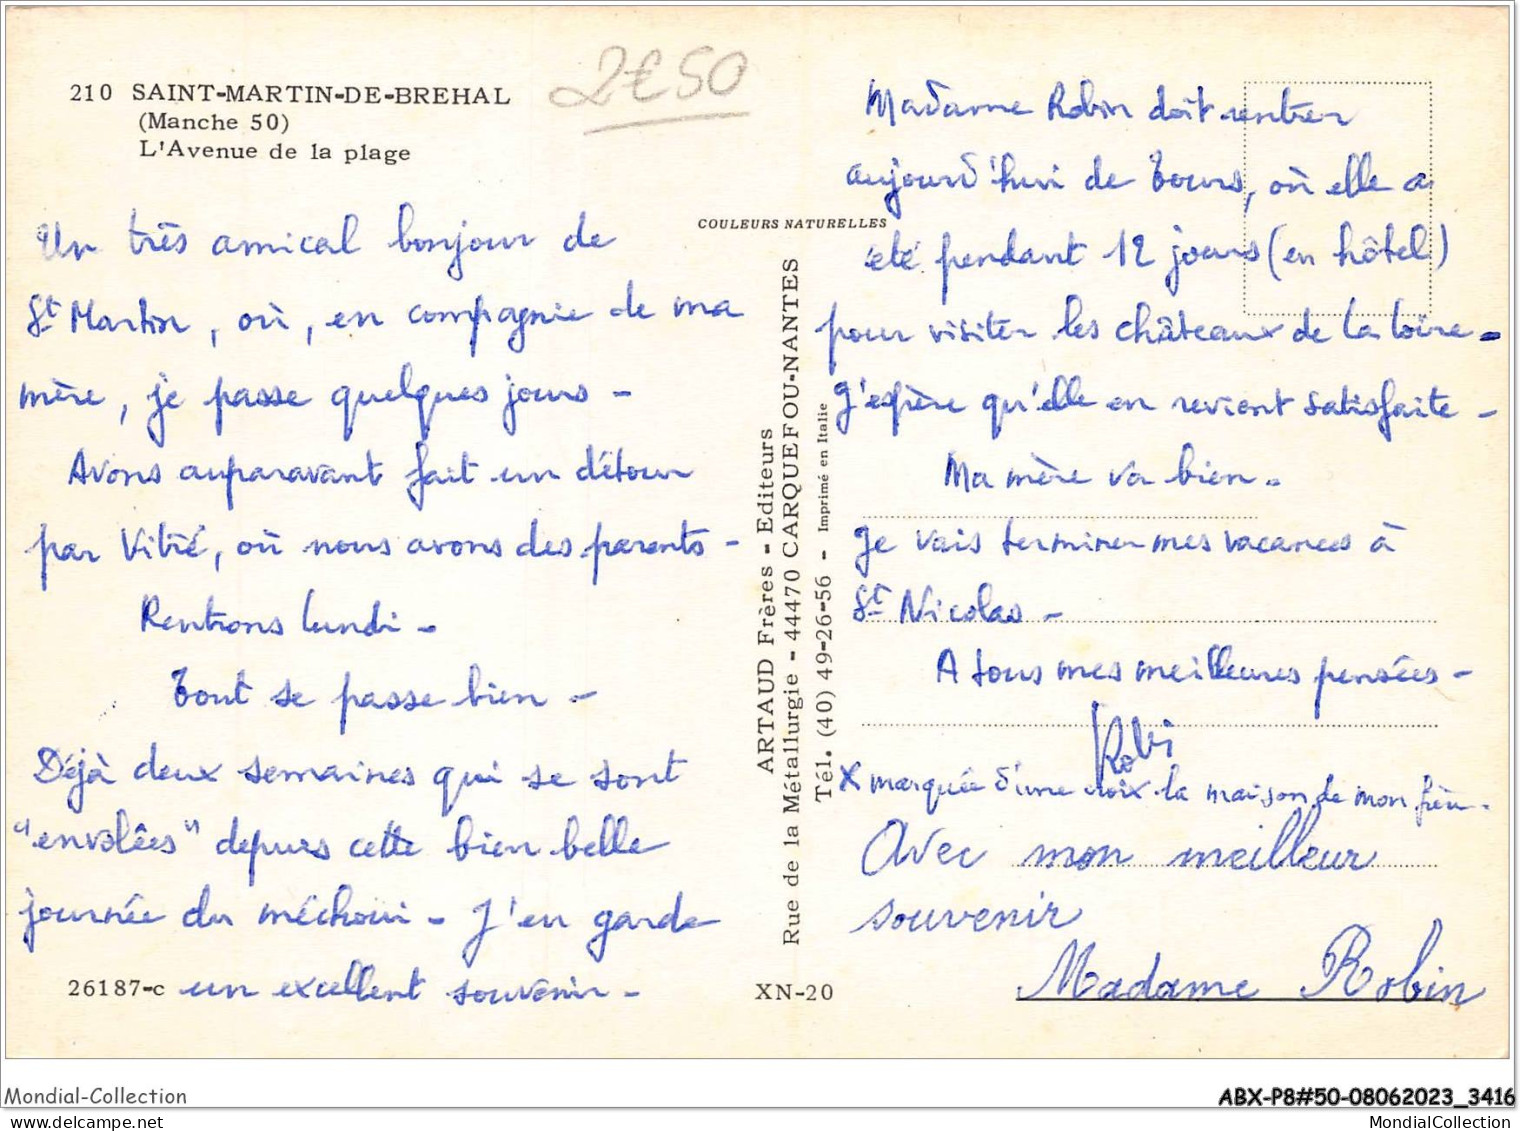 210 SAINT-MARTIN-DE-BREHAL
(Manche 50)
L'Avenue de la plage
2€50
Un très amical bonjour de
St Martin, où, en compagnie de ma
mère, je passe quelques jours -
Avons auparavant fait un détour
par Vitré, où nous avons des parents -
Rentrons lundi -
Tout se passe bien -
Déjà deux semaines qui se sont
"envolées" depuis cette bien belle
journée du méchoui - J'en garde
un excellent souvenir -
26187-c
COULEURS NATURELLES
ARTAUD Frères - Editeurs
Rue de la Métallurgie - 44470 CARQUEFOU-NANTES
Tél. (40) 49-26-56 - Imprimé en Italie
XN-20
Madame Robin doit rentrer
aujourd'hui de Tours, où elle a
été pendant 12 jours (en hôtel)
pour visiter les châteaux de la Loire -
J'espère qu'elle en revient satisfaite -
Ma mère va bien -
Je vais terminer mes vacances à
St Nicolas -
A tous mes meilleures pensées -
Robi
X marquée d'une croix la maison de mon frère -
Avec mon meilleur
souvenir
Madame Robin
Mondial-Collection
ABX-P8#50-08062023_3416
www.delcampe.net
MondialCollection